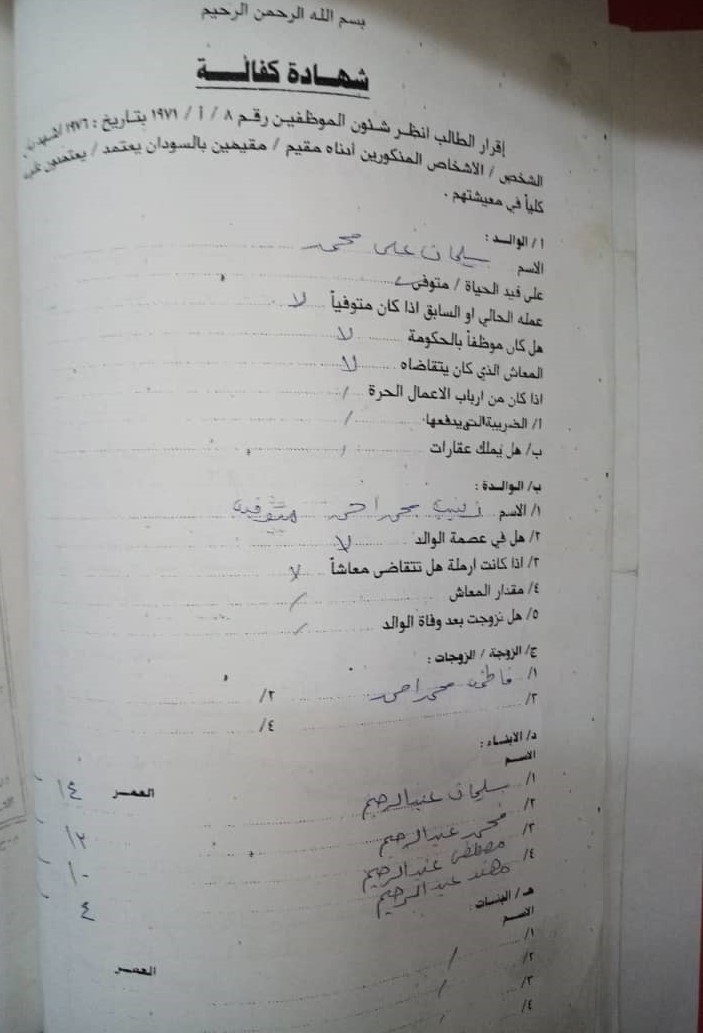 بسم الله الرحمن الرحيم
شهادة كفالة
إقرار الطالب انظر شئون الموظفين رقم ٨ / أ / ١٩٧١ بتاريخ : ١٩٧٦ اشهد بان
الشخص / الاشخاص المذكورين ادناه مقيم / مقيمين بالسودان يعتمد / يعتمدون على
كلياً في معيشتهم .
ا/ الوالد :
الاسم سليمان على محمد
على قيد الحياة / متوفى
عمله الحالي او السابق اذا كان متوفياً لا
هل كان موظفاً بالحكومة لا
المعاش الذي كان يتقاضاه لا
اذا كان من ارباب الاعمال الحرة /
ا/ الضريبة التي يدفعها /
ب/ هل يملك عقارات /
ب/ الوالدة :
١/ الاسم زينب محمد احمد متوفية
٢/ هل في عصمة الوالد لا
٣/ اذا كانت ارملة هل تتقاضى معاشاً لا
٤/ مقدار المعاش /
٥/ هل تزوجت بعد وفاة الوالد /
ج/ الزوجة / الزوجات :
١/ فاطمة محمد احمد ٢/
٣/ ٤/
د/ الابناء :
الاسم العمر
١/ سليمان عبدالرحيم ١٤
٢/ محمد عبدالرحيم ١٢
٣/ مصطفى عبدالرحيم ١٠
٤/ مهند عبدالرحيم ٤
هـ/ البنات :
الاسم العمر
١/ /
٢/ /
٣/
٤/